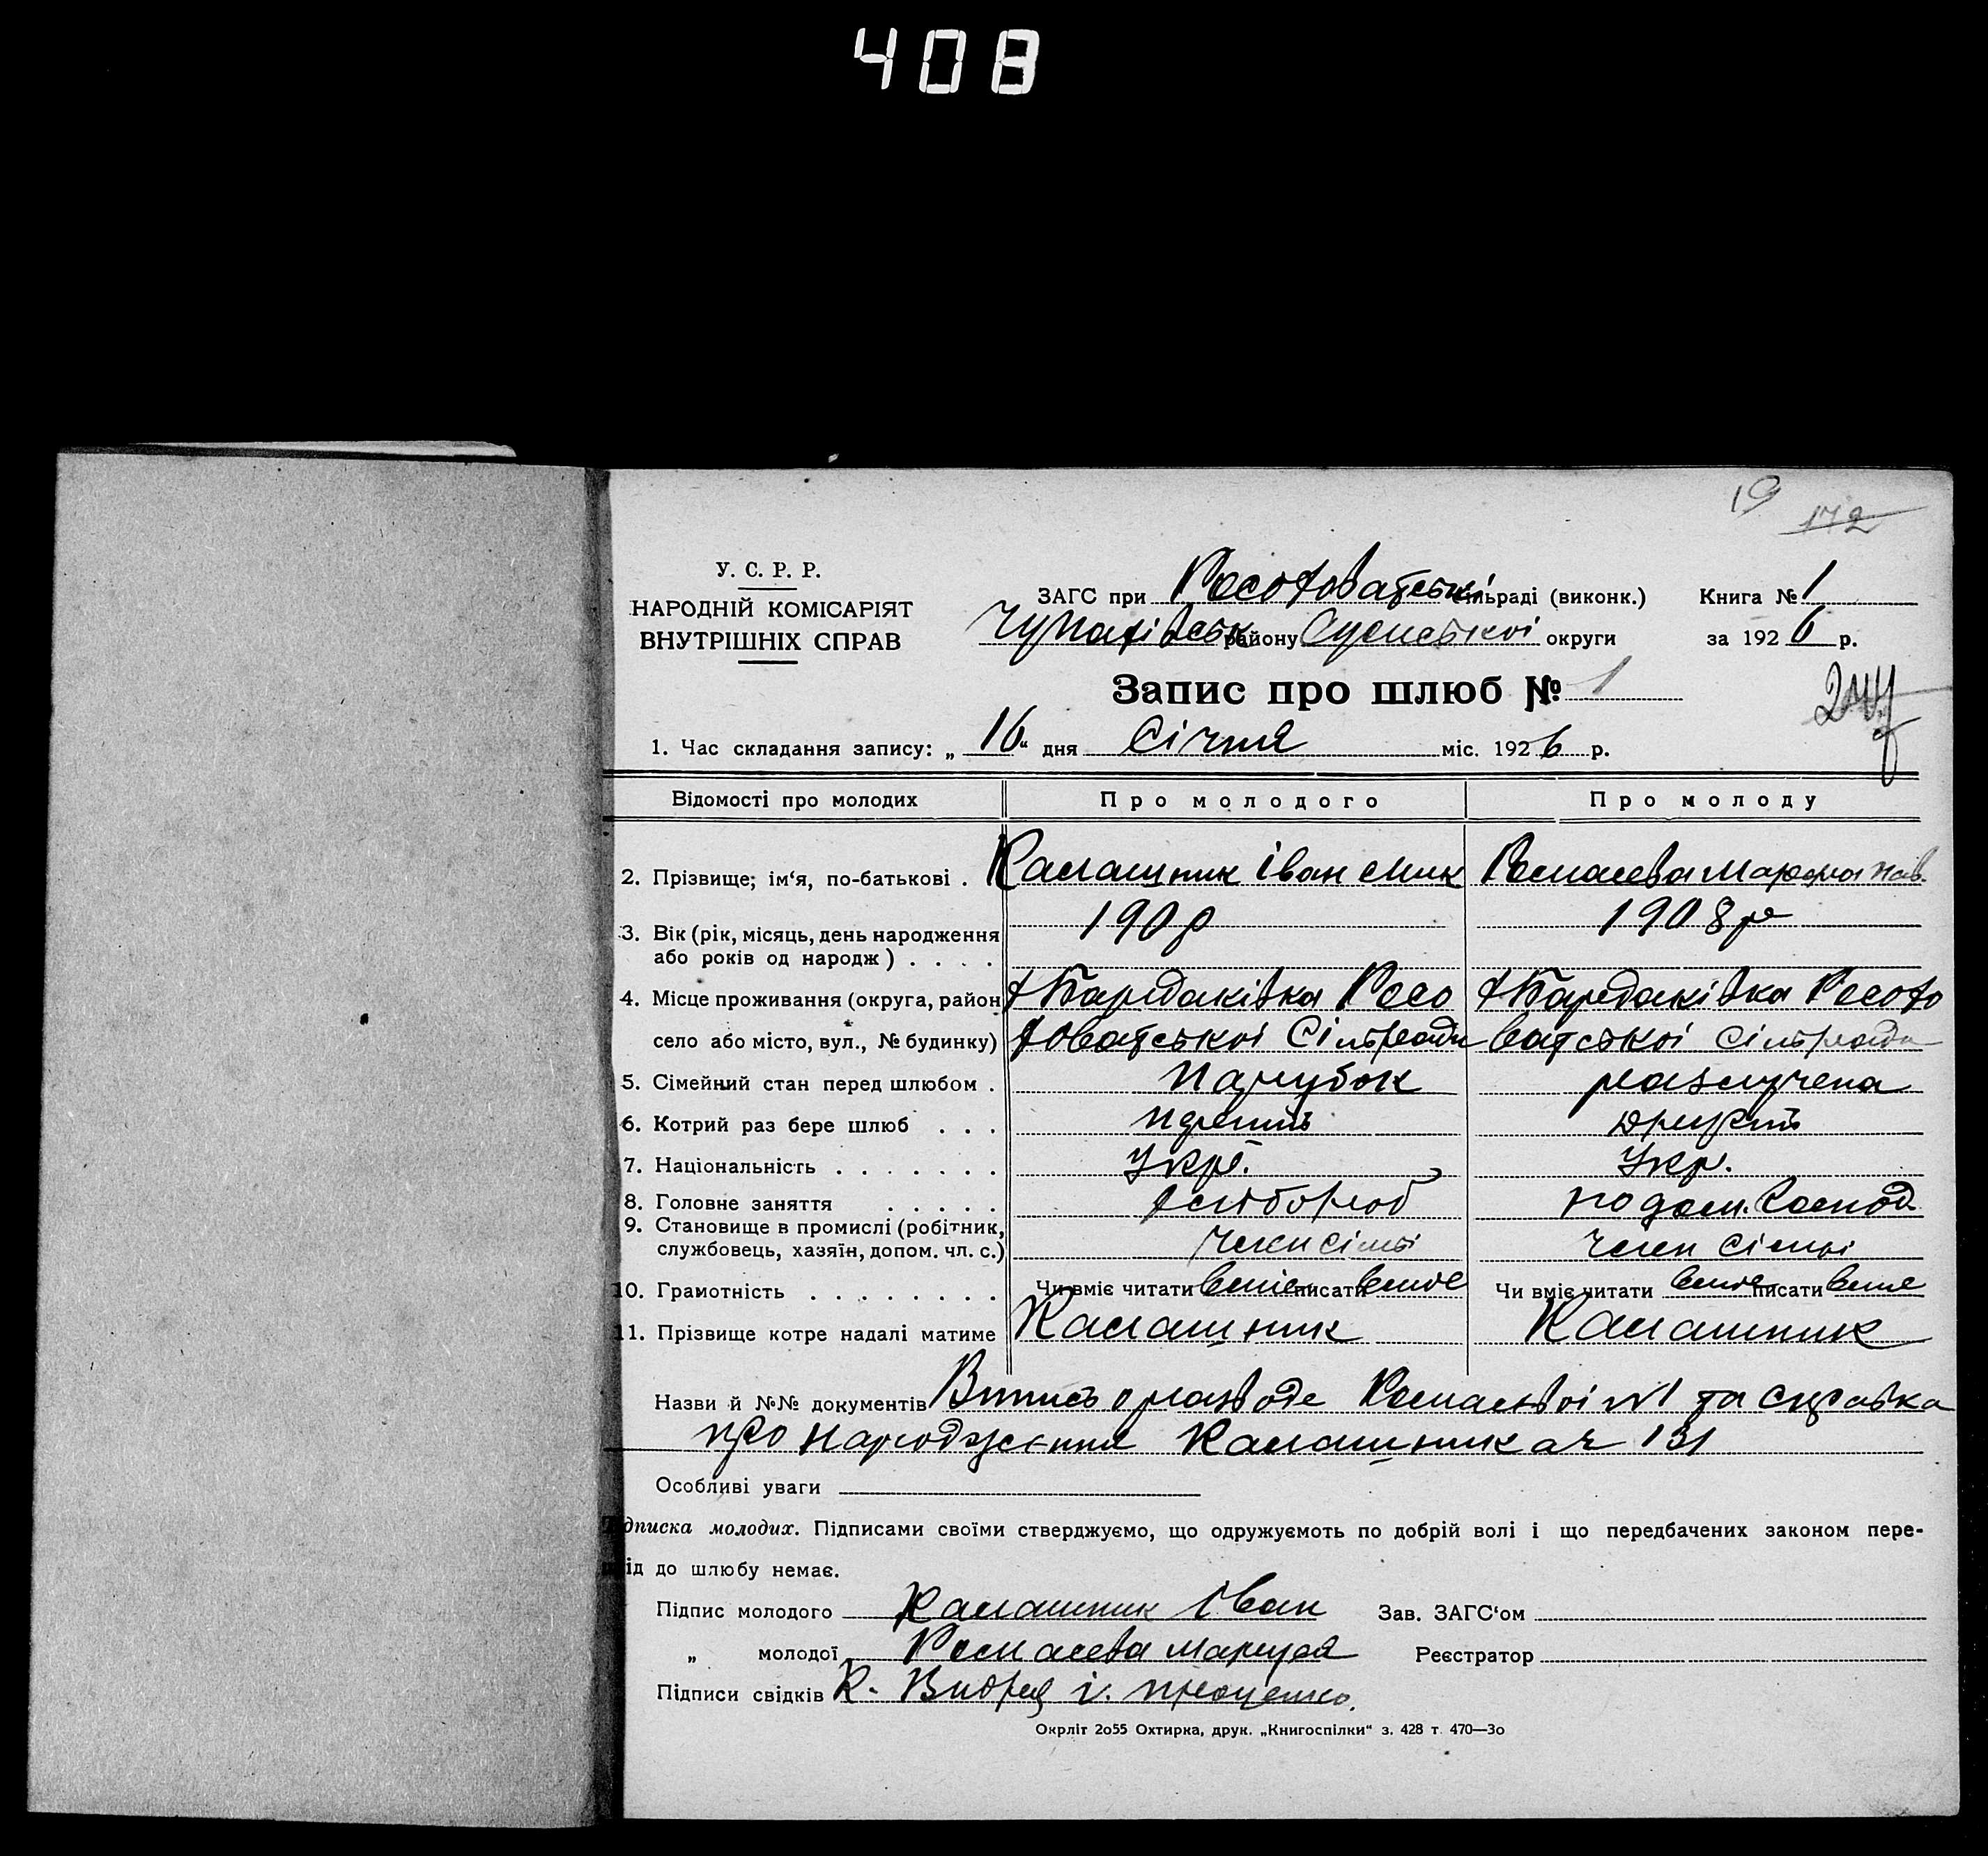 408
19
172
У. С. Р. Р.
НАРОДНІЙ КОМІСАРІЯТ
ВНУТРІШНІХ СПРАВ
ЗАГС при Росоховатській сільраді (виконк.) Книга № 1
Чупахівськ району Сумської округи за 1926 р.
Запис про шлюб № 1
1. Час складання запису: „16“ дня Січня міс. 1926 р.
Відомості про молодих Про молодого Про молоду
2. Прізвище; ім‘я, по-батькові . Калашник Іван Мик Марфа Пав.
3. Вік (рік, місяць, день народження 1908 р
або років од народж) . . . .
4. Місце проживання (округа, район х Бардаківка Росо х Бардаківка Росохо
село або місто, вул., № будинку) ховатської Сільради ватської Сільради
5. Сімейний стан перед шлюбом . парубок разлучена
6. Котрий раз бере шлюб . . . перший другий
7. Національність . . . . . . . Укр. Укр.
8. Головне заняття . . . . . хлібороб по дом. господ.
9. Становище в промислі (робітник,
службовець, хазяїн, допом. чл. с.) член сімьі член сімьі
10. Грамотність . . . . . . . . Чи вміє читати вміє писати вміє Чи вміє читати вміє писати вміє
11. Прізвище котре надалі матиме Калашник Калашник
Назви й №№ документів Випись о разводе №1 та справка
про народження Калашник 131
Особливі уваги
Підписка молодих. Підписами своїми стверджуємо, що одружуємоть по добрій волі і що передбачених законом пере-
від до шлюбу немає.
Підпис молодого Калашник Іван Зав. ЗАГС‘ом
„ молодої Реєстратор
Підписи свідків К. І. Проценко.
Окрліт 2о55 Охтирка, друк. „Книгоспілки“ з. 428 т. 470—3о